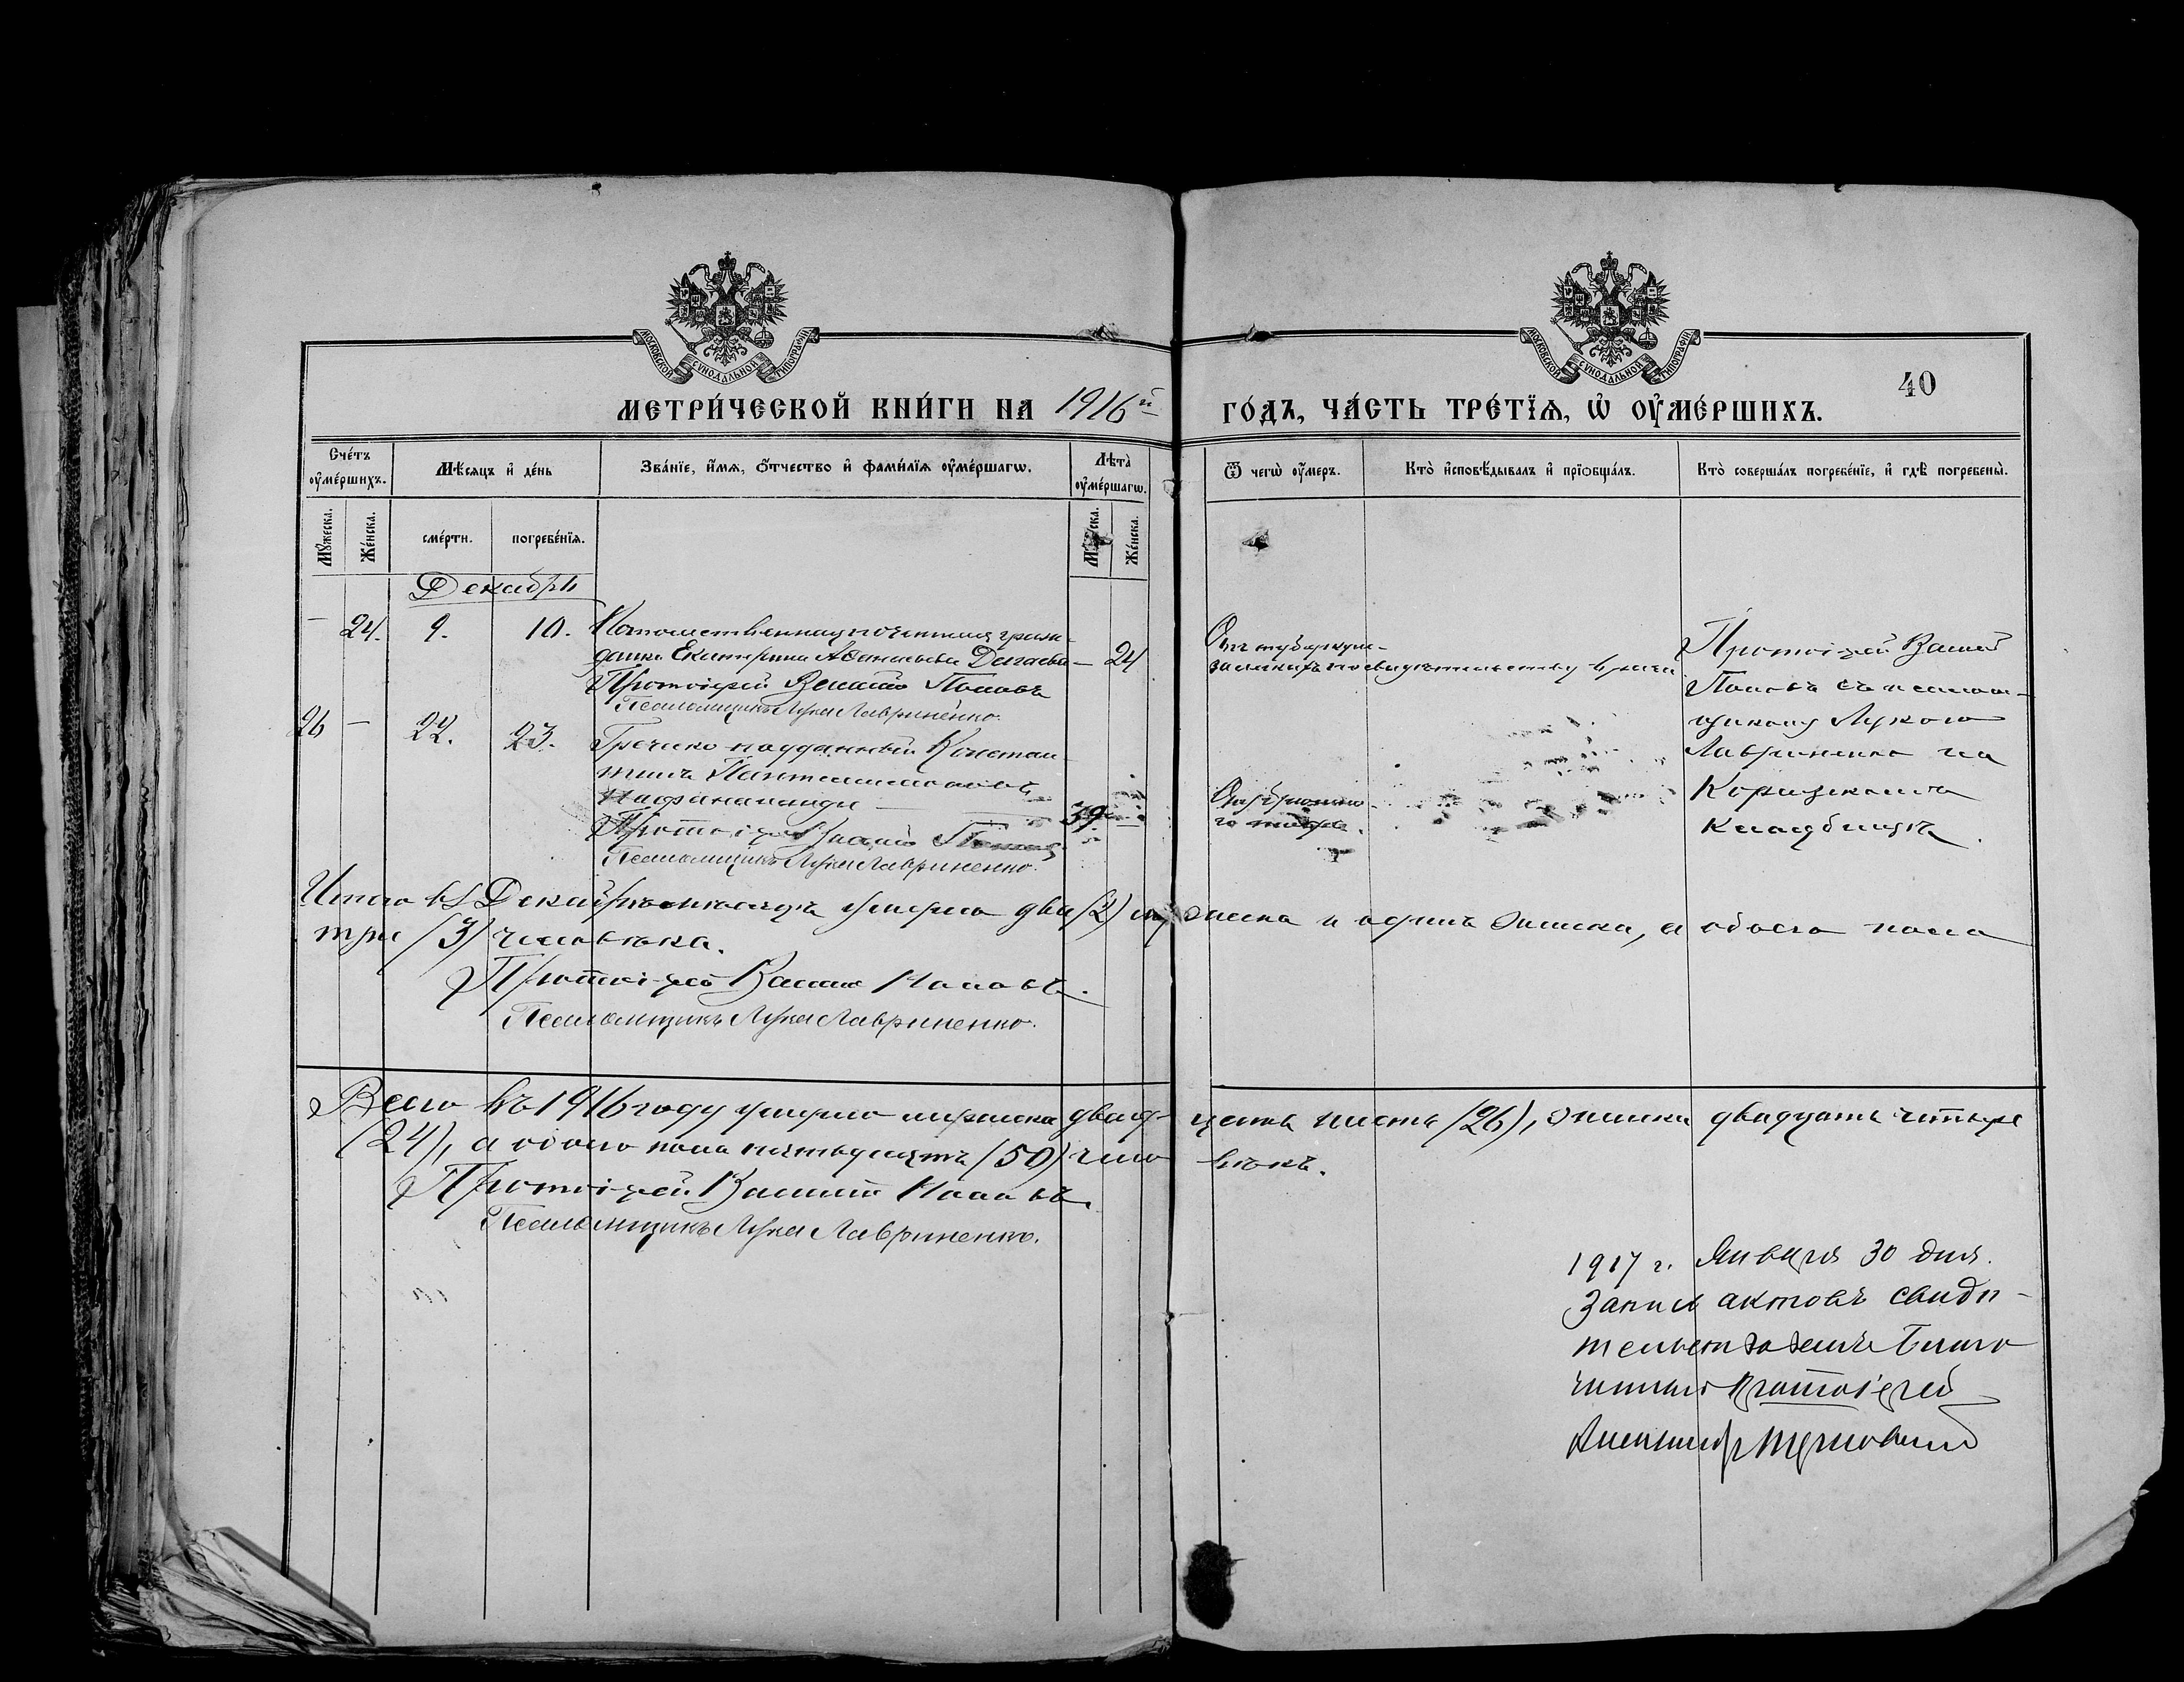 МОСКОВСКОЙ СѴНОДАЛЬНОЙ ТИПОГРАФІИ
МОСКОВСКОЙ СѴНОДАЛЬНОЙ ТИПОГРАФІИ
40
МЕТРИ́ЧЕСКОЙ КНИ́ГИ НА 1916й ГО́ДЪ, ЧА́СТЬ ТРЕ́ТЇѦ, Ѡ҆ ОУ҆МЕ́РШИХЪ.
Сче́тъ оу҆ме́ршихъ.
Мѣ́сяцъ и҆ де́нь
Зва́нїе, и҆́мѧ, ѻ҆́тчество и҆ фами́лїѧ оу҆ме́ршагѡ.
Лѣ́та оу҆ме́ршагѡ.
Ѿ чегѡ̀ оу҆́меръ.
Кто̀ и҆сповѣ́дывалъ и҆ прїѻбща́лъ.
Кто̀ соверша́лъ погребе́нїе, и҆ гдѣ̀ погребены̀.
Мꙋ́жеска.
Же́нска.
сме́рти.
погребе́нїѧ.
Же́нска.
Декабрь
— 24. 9. 10. Потомственная почетная граж-
данка Екатерина Аѳанасьева — 24
Протоіерей Василій Поповъ
Псаломщикъ Лука Лавриненко.
Отъ туберкуле-
за легкихъ по свидѣтельству врача
Протоіерей Василій
Поповъ съ псалом-
щикомъ Лукою
Лавриненко на
кладбищѣ.
26 — 22. 23. Греческо-подданный Констан-
тинъ
39
Протоіерей Василій Поповъ
Псаломщикъ Лука Лавриненко.
Отъ брюшно-
го тифа.
Итого въ Декабрѣ мѣсяцѣ умерло два /2/ мужеска и одинъ женска, а обоего пола
три /3/ человѣка.
Протоіерей Василій Поповъ.
Псаломщикъ Лука Лавриненко.
Всего въ 1916 году умерло мужеска двадцать шесть /26/, женска двадцать четыре
(24), а обоего пола пятьдесятъ /50/ человѣкъ.
Протоіерей Василій Поповъ.
Псаломщикъ Лука Лавриненко.
1917 г. Января 30 дня.
Запись актовъ свидѣ-
тельствовалъ Благо-
чинный Протоіерей
Александръ